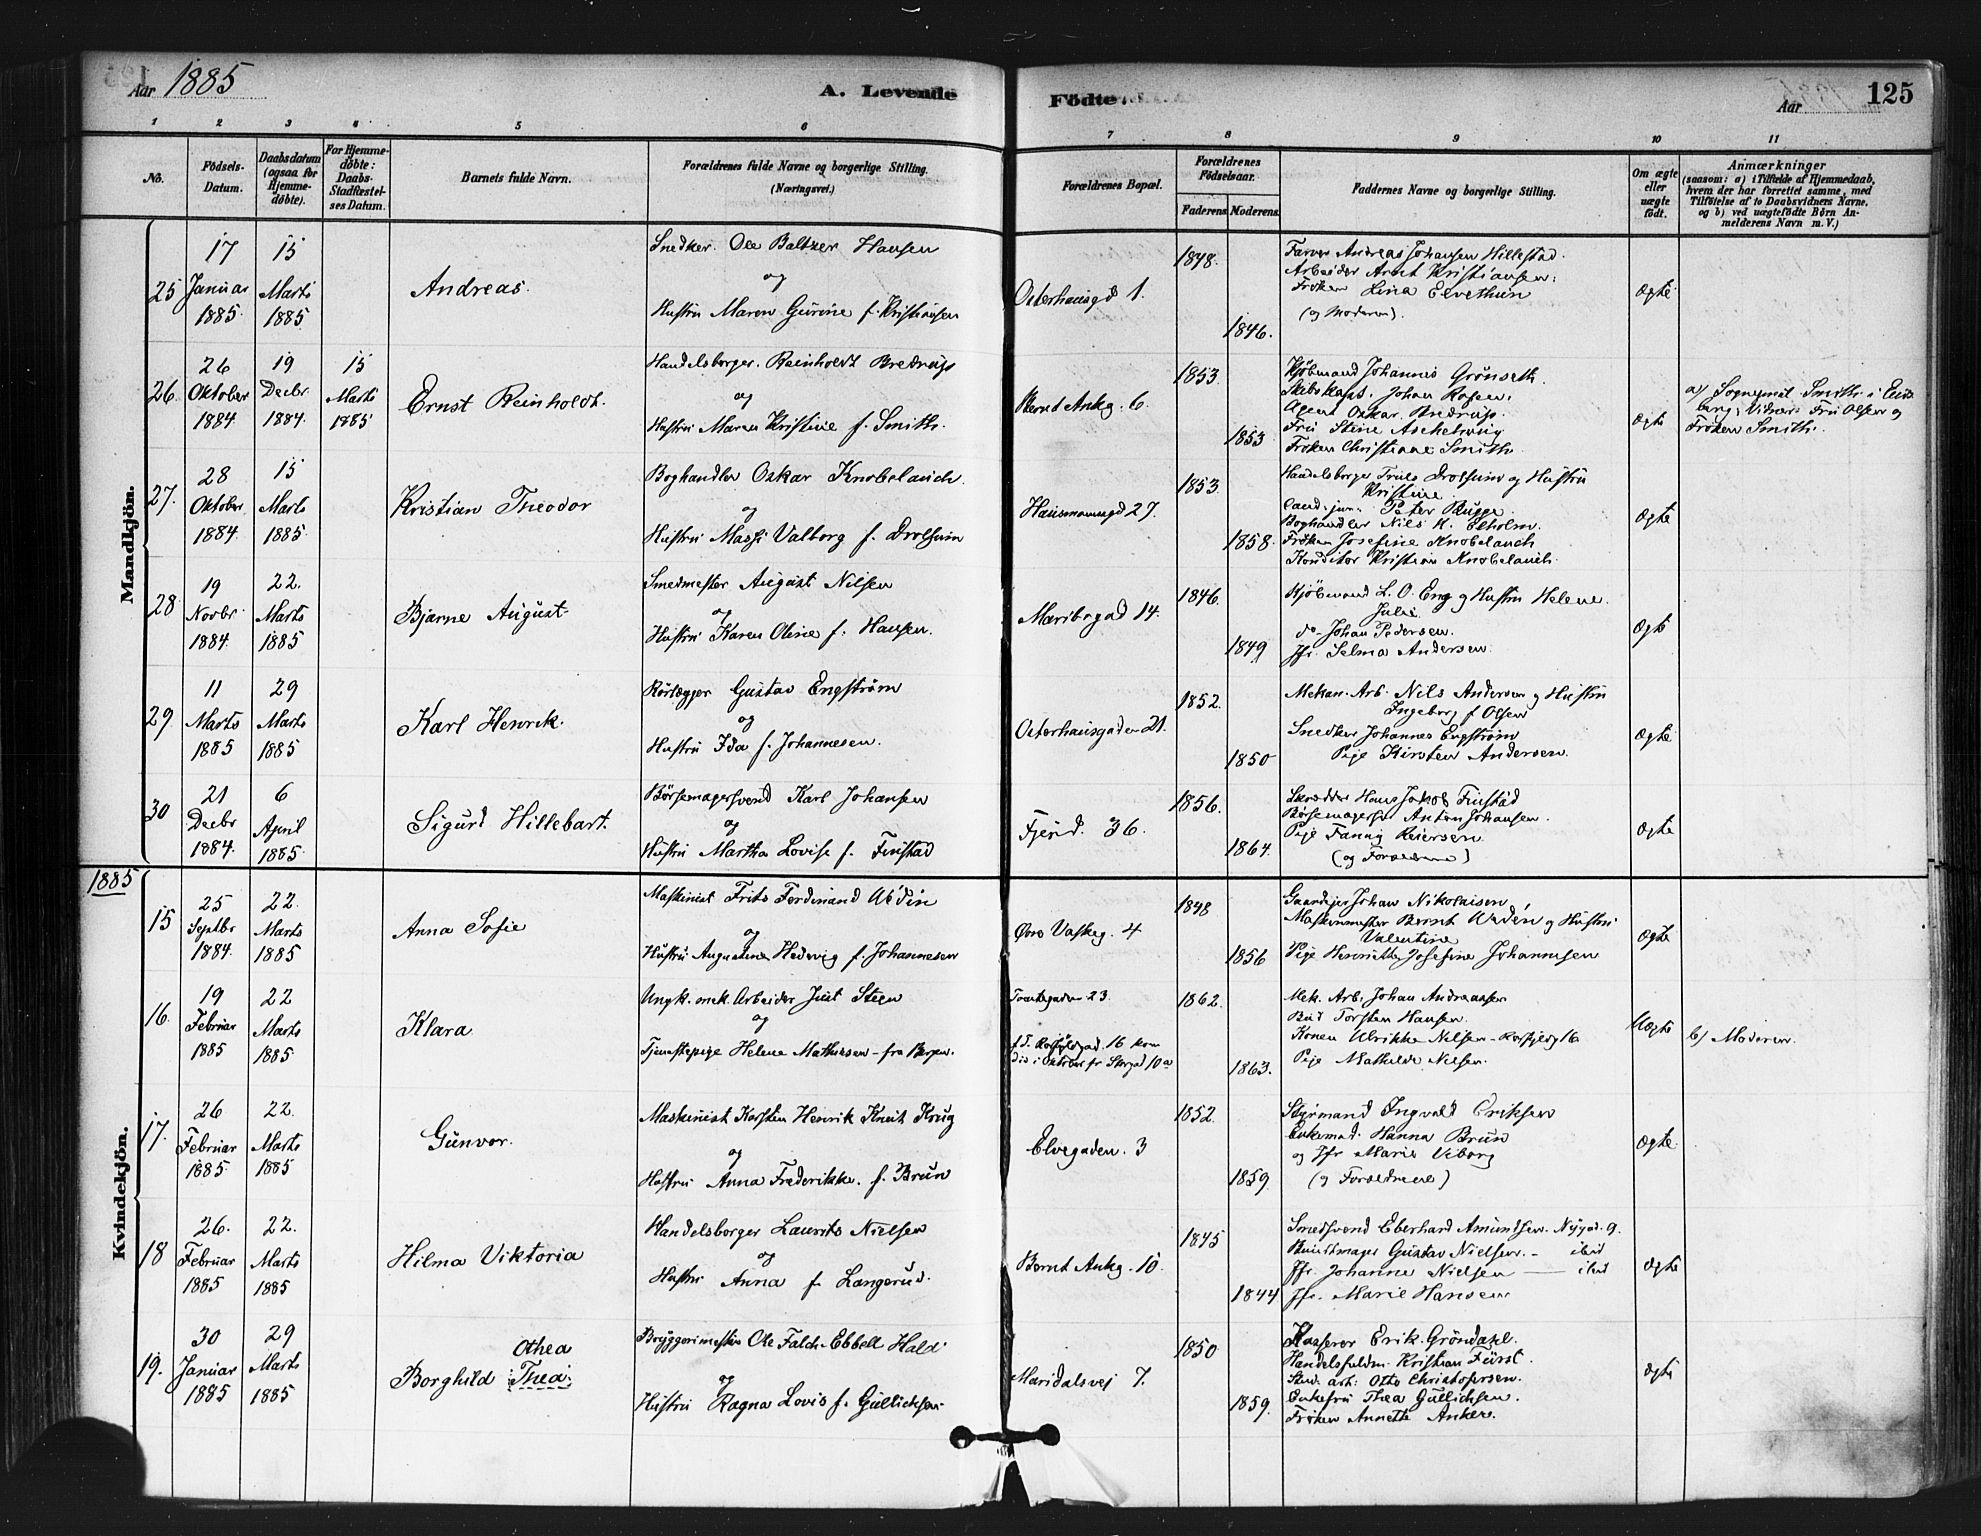 Aar 1885
A. Levende
Födte.
Aar
125
1 2 3 4 5 6 7 8 9 10 11
No.
Födsels-
Datum.
Daabsdatum
(ogsaa for
Hjemme-
döbte).
For Hjemme-
döbte:
Daabs-
Stadfæstel-
ses Datum.
Barnets fulde Navn.
Forældrenes fulde Navne og borgerlige Stilling.
(Næringsvei.)
Forældrenes Bopæl.
Forældrenes
Födselsaar.
Faderens
Moderens
Faddernes Navne og borgerlige Stilling.
Om ægte
eller
uægte
födt.
Anmærkninger
(saasom: a) i Tilfælde af Hjemmedaab,
hvem der har forrettet samme, med
Tilföielse af to Daabsvidners Navne,
og b) ved uægtefödte Börn An-
melderens Navn m. V.)
Mandkjön.
25
17
Januar
1885.
15
Marts
1885
Andreas.
Snedker. Ole Baltzer Hansen
og
Hustru Maren Gurine f. Kristiansen
Osterhausgd 1.
1848.
1846.
Farver Andreas Johansen Hillestad.
Arbeider Arnt Kristiansen.
Frøken Lina Elvethun
(og Moderen).
Ægte
26.
26
Oktober
1884
19
Decbr
1884.
15
Marts
1885
Ernst Reinholdt.
Handelsborger. Reinholdt Bredrup
og
Hustru Maren Kristine f. Smith.
Bernt Ankg. 6.
1853.
1853
Kjøbmand Johannes Grönseth.
Skibskapt. Johan
Agent Oskar
Fru Stine
Frøken Christiane Smith
Ægte
a/ Sogneprest Smith i
Vidner: Fru Olsen og
Frøken Smith.
27.
28
Oktober
1884.
15
Marts
1885.
Kristian Theodor
Boghandler Oskar Knobelauch.
og
Hustru Massi Valborg f. Drolsum
Hausmannsgd 27.
1853.
1858.
Handelsborger Truls Drolsum og Hustru
Kristine.
Cand. jur. Peter Rygge.
Boghandler Nils H. Ekholm.
Frøken Josefine Knobelauch
Konditor Kristian Knobelauch.
Ægte
28
19
Novbr.
1884.
22.
Marts
1885
Bjarne August
Smedmester August Nilsen
og
Hustru Karen Oline f. Hansen.
Maribogad 14.
1846.
1849
Kjöbmand L. O. Eng og Hustru Helene
Julie
do Johan Pedersen.
Jfr. Selma Andersen.
Ægte
29
11
Marts
1885
29
Marts
1885
Karl Henrik.
Rörlægger Gustav Engström
og
Hustru Ida f. Johannesen.
Osterhausgaden 21.
1852.
1850
Mekan. Arb. Nils Andersen og Hustru
Ingeborg f Olsen
Snedker Johannes Engström
Pige Kirsten Andersen.
Ægte
30
21
Decbr
1884.
6
April
1885.
Sigurd Hillebart.
Börsemagersvend Karl Johansen
og
Hustru Martha Lovise f. Finstad
Fjerd. 36.
1856.
1864.
Skrædder Hans Jakob Finstad
Börsemagersv Anton Johansen.
Pige Fanny Reiersen
(og Forældrene)
Ægte
1885
Kvindekjön.
15
25
Septbr
1884.
22.
Marts
1885
Anna Sofie
Maskinist Frits Ferdinand Udén
og
Hustru Augustine Hedevig f. Johannesen
Øvre Vaskeg. 4
1848
1856
Gaardejer Johan Nikolaisen
Maskinmester Bernt Udén og Hustru
Valentine
Pige Henriette Josefine Johannesen
Ægte
16.
19
Februar
1885
22
Marts
1885.
Klara
Ungk. mek. Arbeider Just Steen
og
Tjenestepige Helene Mathiesen – fra Bergen.
Tomtegaden 23.
16 kom
did i Oktober fr Storgad 10a
1862.
1863.
Mek. Arb. Johan Andreassen
Bud Torsten Hansen.
Konen Ulrikke Nilsen – 16
Pige Mathilde Nilsen.
Uægte
b/ Moderen.
17.
26
Februar
1885.
22.
Marts
1885
Gunvor.
Maskinist Karsten Henrik Knut Krug
og
Hustru Anna Frederikke. f. Brun
Elvegaden. 3
1852.
1859.
Styrmand Ingvald Eriksen
Enkemad. Hanna Brun
og Jfr Marie Viborg
(og Forældrene)
Ægte
18
26.
Februar
1885
22.
Marts
1885
Hilma Viktoria
Handelsborger Laurits Nielsen
og
Hustru Anna f. Langerud.
Bernt Ankg. 10.
1845
1844
Smedsvend Eberhard Amundsen. Nygad. 9.
Buntmager Gustav Nielsen. – ibid
Jfr. Johanne Nielsen — ibid
Jfr. Marie Hansen
Ægte
19.
30
Januar
1885
29
Marts
1885
Othea
Borghild Thea.
Bryggerimester Ole Falck-Ebbell Hald
og
Hustru Ragna Lovis f. Gullichsen
Maridalsvej 7.
1850
1859.
Kasserer Erik Gröndahl.
Handelsfuldm. Kristian Fürst.
Stud. art. Otto Christofersen.
Enkefru Thea Gullichsen.
Frøken Annette Anker.
Ægte